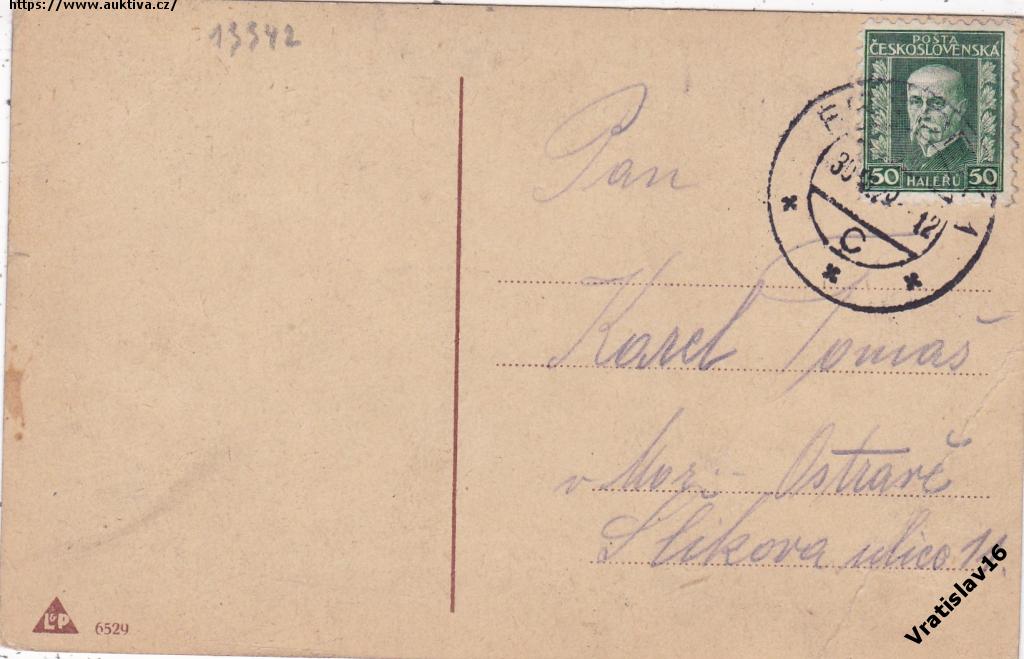 https://www.auktiva.cz/
13342
POŠTA
ČESKOSLOVENSKÁ
50 HALÉŘŮ 50
12
C
1
Pan
Karel Tomáš
v Mor. Ostravě
Slikova ulice
L&P
6529
Vratislav16